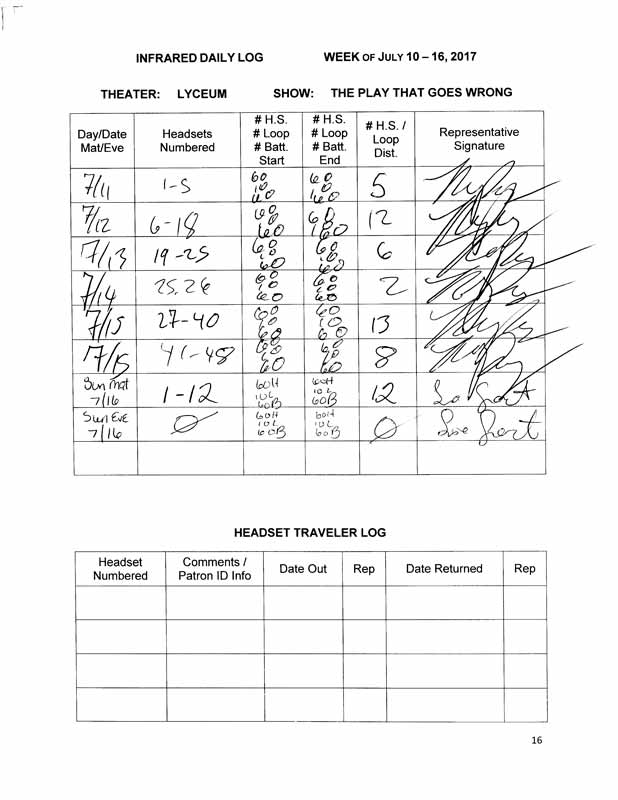 INFRARED DAILY LOG WEEK OF JULY 10 – 16, 2017
THEATER: LYCEUM SHOW: THE PLAY THAT GOES WRONG
Day/Date Mat/Eve Headsets Numbered # H.S. # Loop # Batt. Start # H.S. # Loop # Batt. End # H.S. / Loop Dist. Representative Signature
7/11 1-5 60 10 60 60 10 60 5
7/12 6-18 60 60 60 12
7/13 19-25 60 60 60 60 6
7/14 25,26 60 60 60 60 2
7/15 27-40 60 60 60 10 60 13
7/15 41-48 60 60 60 60 8
Sun Mat 7/16 1-12 60H 10L 60B 60H 10L 60B 12
Sun Eve 7/16 0 60H 10L 60B 60H 10L 60B 0
HEADSET TRAVELER LOG
Headset Numbered Comments / Patron ID Info Date Out Rep Date Returned Rep
16